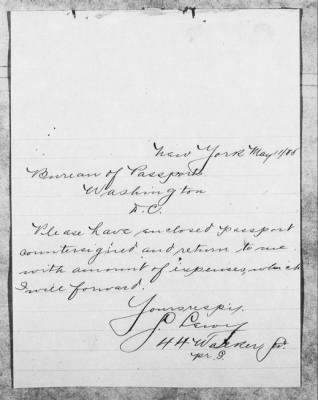 New York May 11/86
Bureau of Passports
Washington
D.C.
Please have enclosed passport
countersigned and return to me
with amount of expenses, which
I will forward.
Yours respy.
J. Levy
44 Walker St.
pr. S.